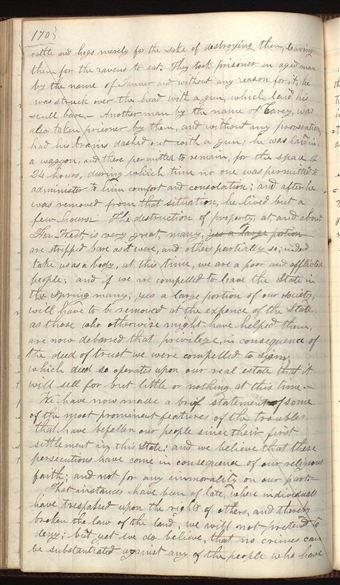 1705
cattle and hogs merely for the sake of destroying them, leaving
them for the ravens to eat. They took prisoner an aged man
by the name of Tanner and without any reason for it, he
was struck over the head with a gun, which laid his
scull bare. Another man by the name of Carey, was
also taken prisoner by them, and without any provocation
had his brains dashed out with a gun; he was laid in
a waggon, and there permitted to remain, for the space of
24 hours, during which time no one was permitted to
administer to him comfort and consolation; and after he
was removed from that situation, he lived but a
few hours— The destruction of property, at and about
Far West is very great many, yes a large portion
are stripped bare as it were, and others partially so; indeed
take us as a body, at this time, we are a poor and afflicted
people, and if we are compelled to leave the State in
the Spring many; yes a large portion of our society,
will have to be removed at the expense of the State
as those who otherwise might have helped them,
are now debared that privilege, in consequence of
the deed of trust we were compelled to sign,
which deed so operates upon our real estate that it
will sell for but little or nothing at this time.—
We have now made a brief statement of some
of the most prominent features of the troubles
that have befallen our people since their first
settlement in this State; and we believe that these
persecutions have come in consequence of our religious
faith; and not for any immorality on our part
That instances have been of late, where individuals
have trespassed upon the rights of others, and thereby
broken the law of the land, we will not pretend to
deny; but yet we do believe, that no crimes can
be substantiated against any of the people who have